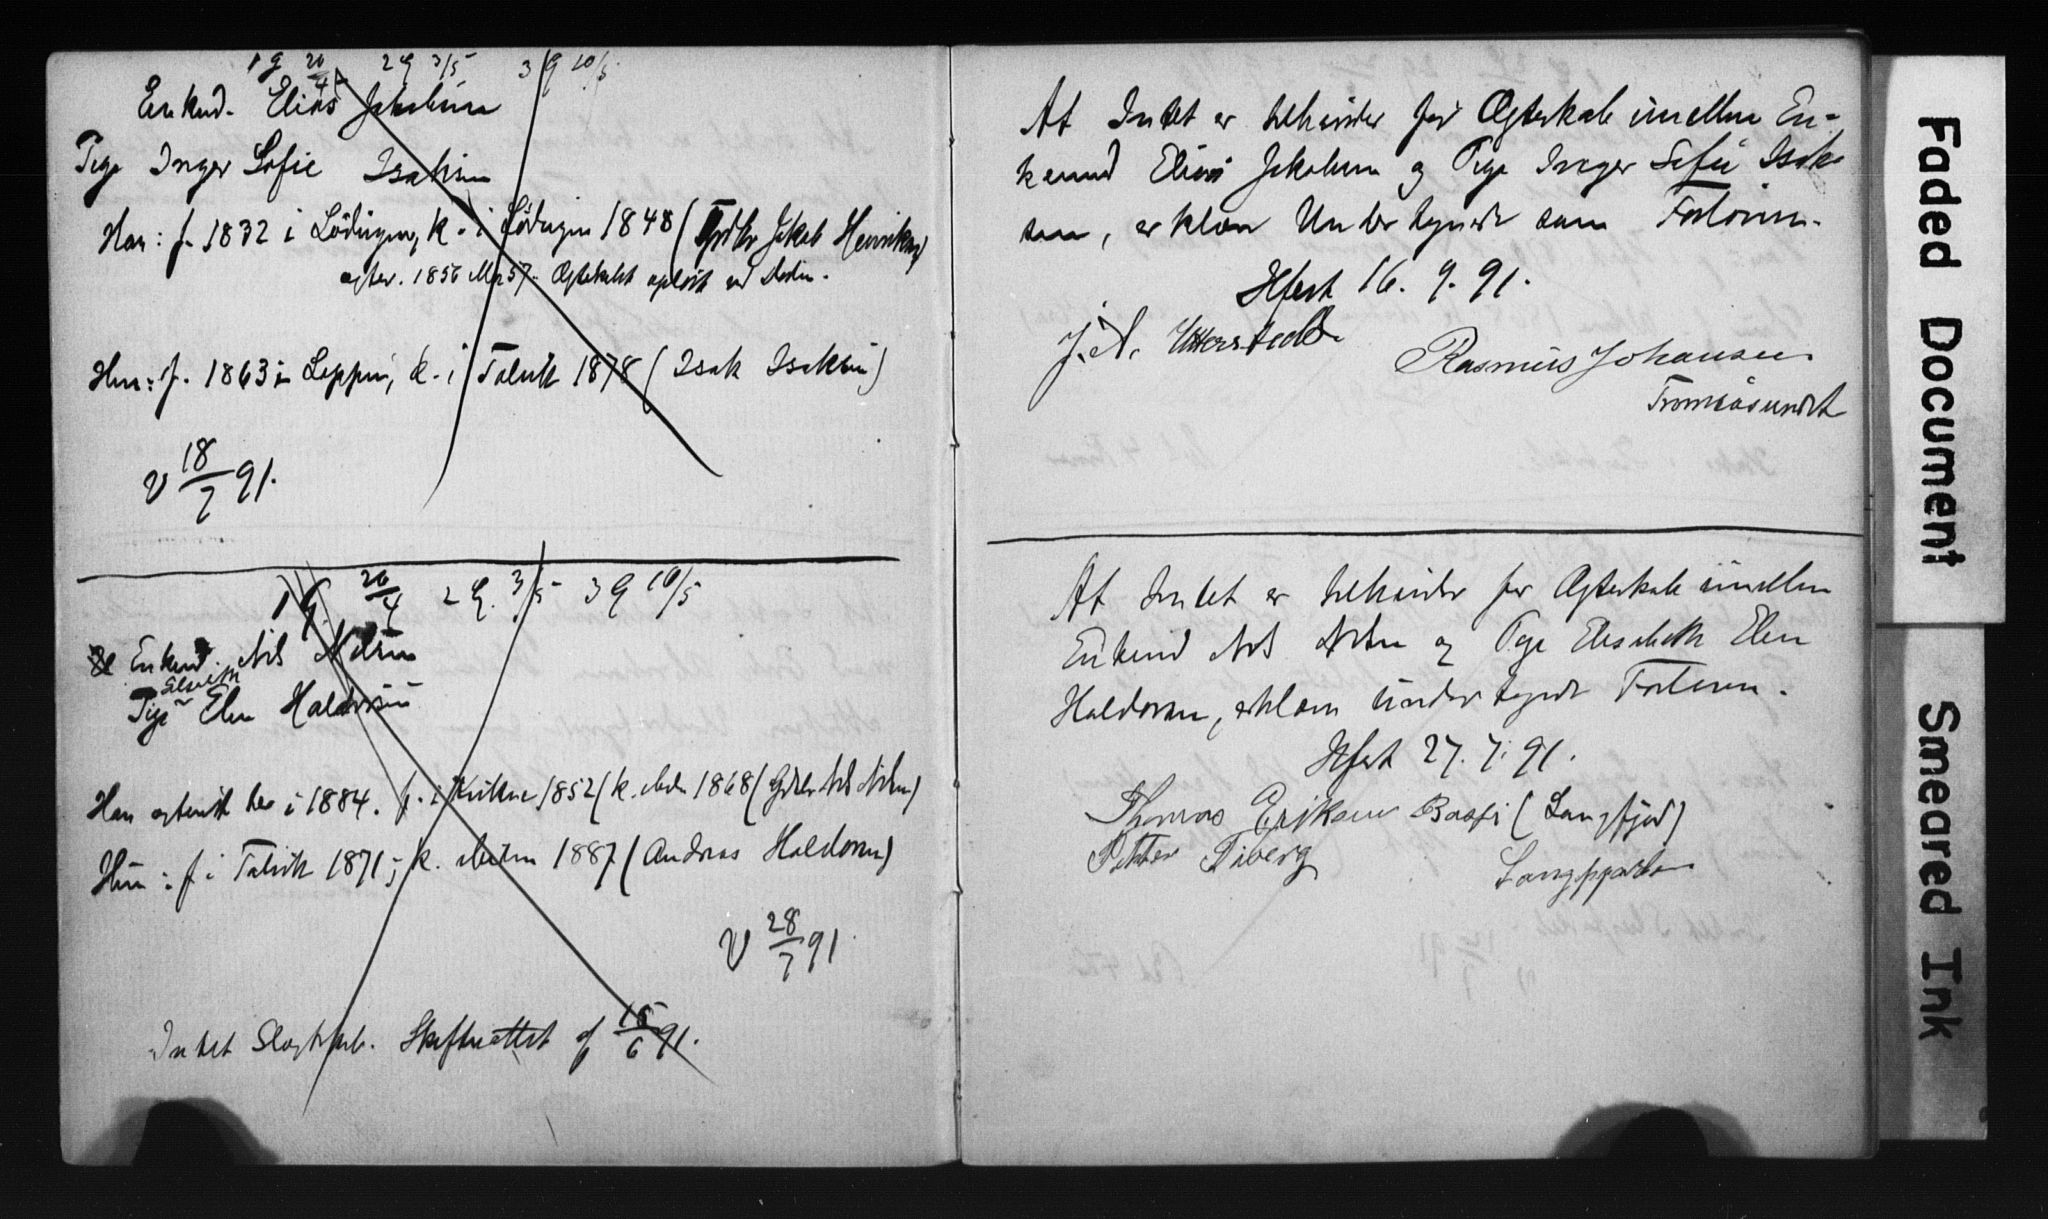 1 G 26/4 2 G 3/5 3 G 10/5
Enkmd. Elias Jakobsen
Pige Inger Sofie Isaksen
Han: f. 1832 i Lödingen, k. i Lödingen 1848 ( Jakob Henriksen)
1856 Ægteskabet opløst ved Døden.
Hun: f. 1863 i Loppen, k. i Talvik 1878 (Isak Isaksen)
V 18/7 91.
1 G. 26/4 2 G. 3/5 3 G 10/5
Enkemd. Nils Nilsen
Elisabeth
Pige Elen Haldorsen
Han i 1884. f. i 1852 (k. 1868 (Nils Nilsen)
Hun: f i Talvik 1871; k. 1887 (Andreas Haldorsen)
V 28/7 91.
Intet Slægtskab. Skifteattest af 15/6 91.
At Intet er til Hinder for Ægteskab imellem En-
kemd Elias Jakobsen og Pige Inger Sofie Isak-
sen, erklærer Undertegnede som Forlovere.
Hfest 16. 9. 91.
J. A.
Rasmus Johansen
Tromsösundet
At Intet er til Hinder for Ægteskab imellem
Enkemd Nils Nilsen og Pige Elisabeth Elen
Haldorsen, erklærer undertegnede Forlovere.
Hfest 27. 7. 91.
Thomas Eriksen (Langfjord)
Petter Tiberg
Faded Document
Smeared Ink